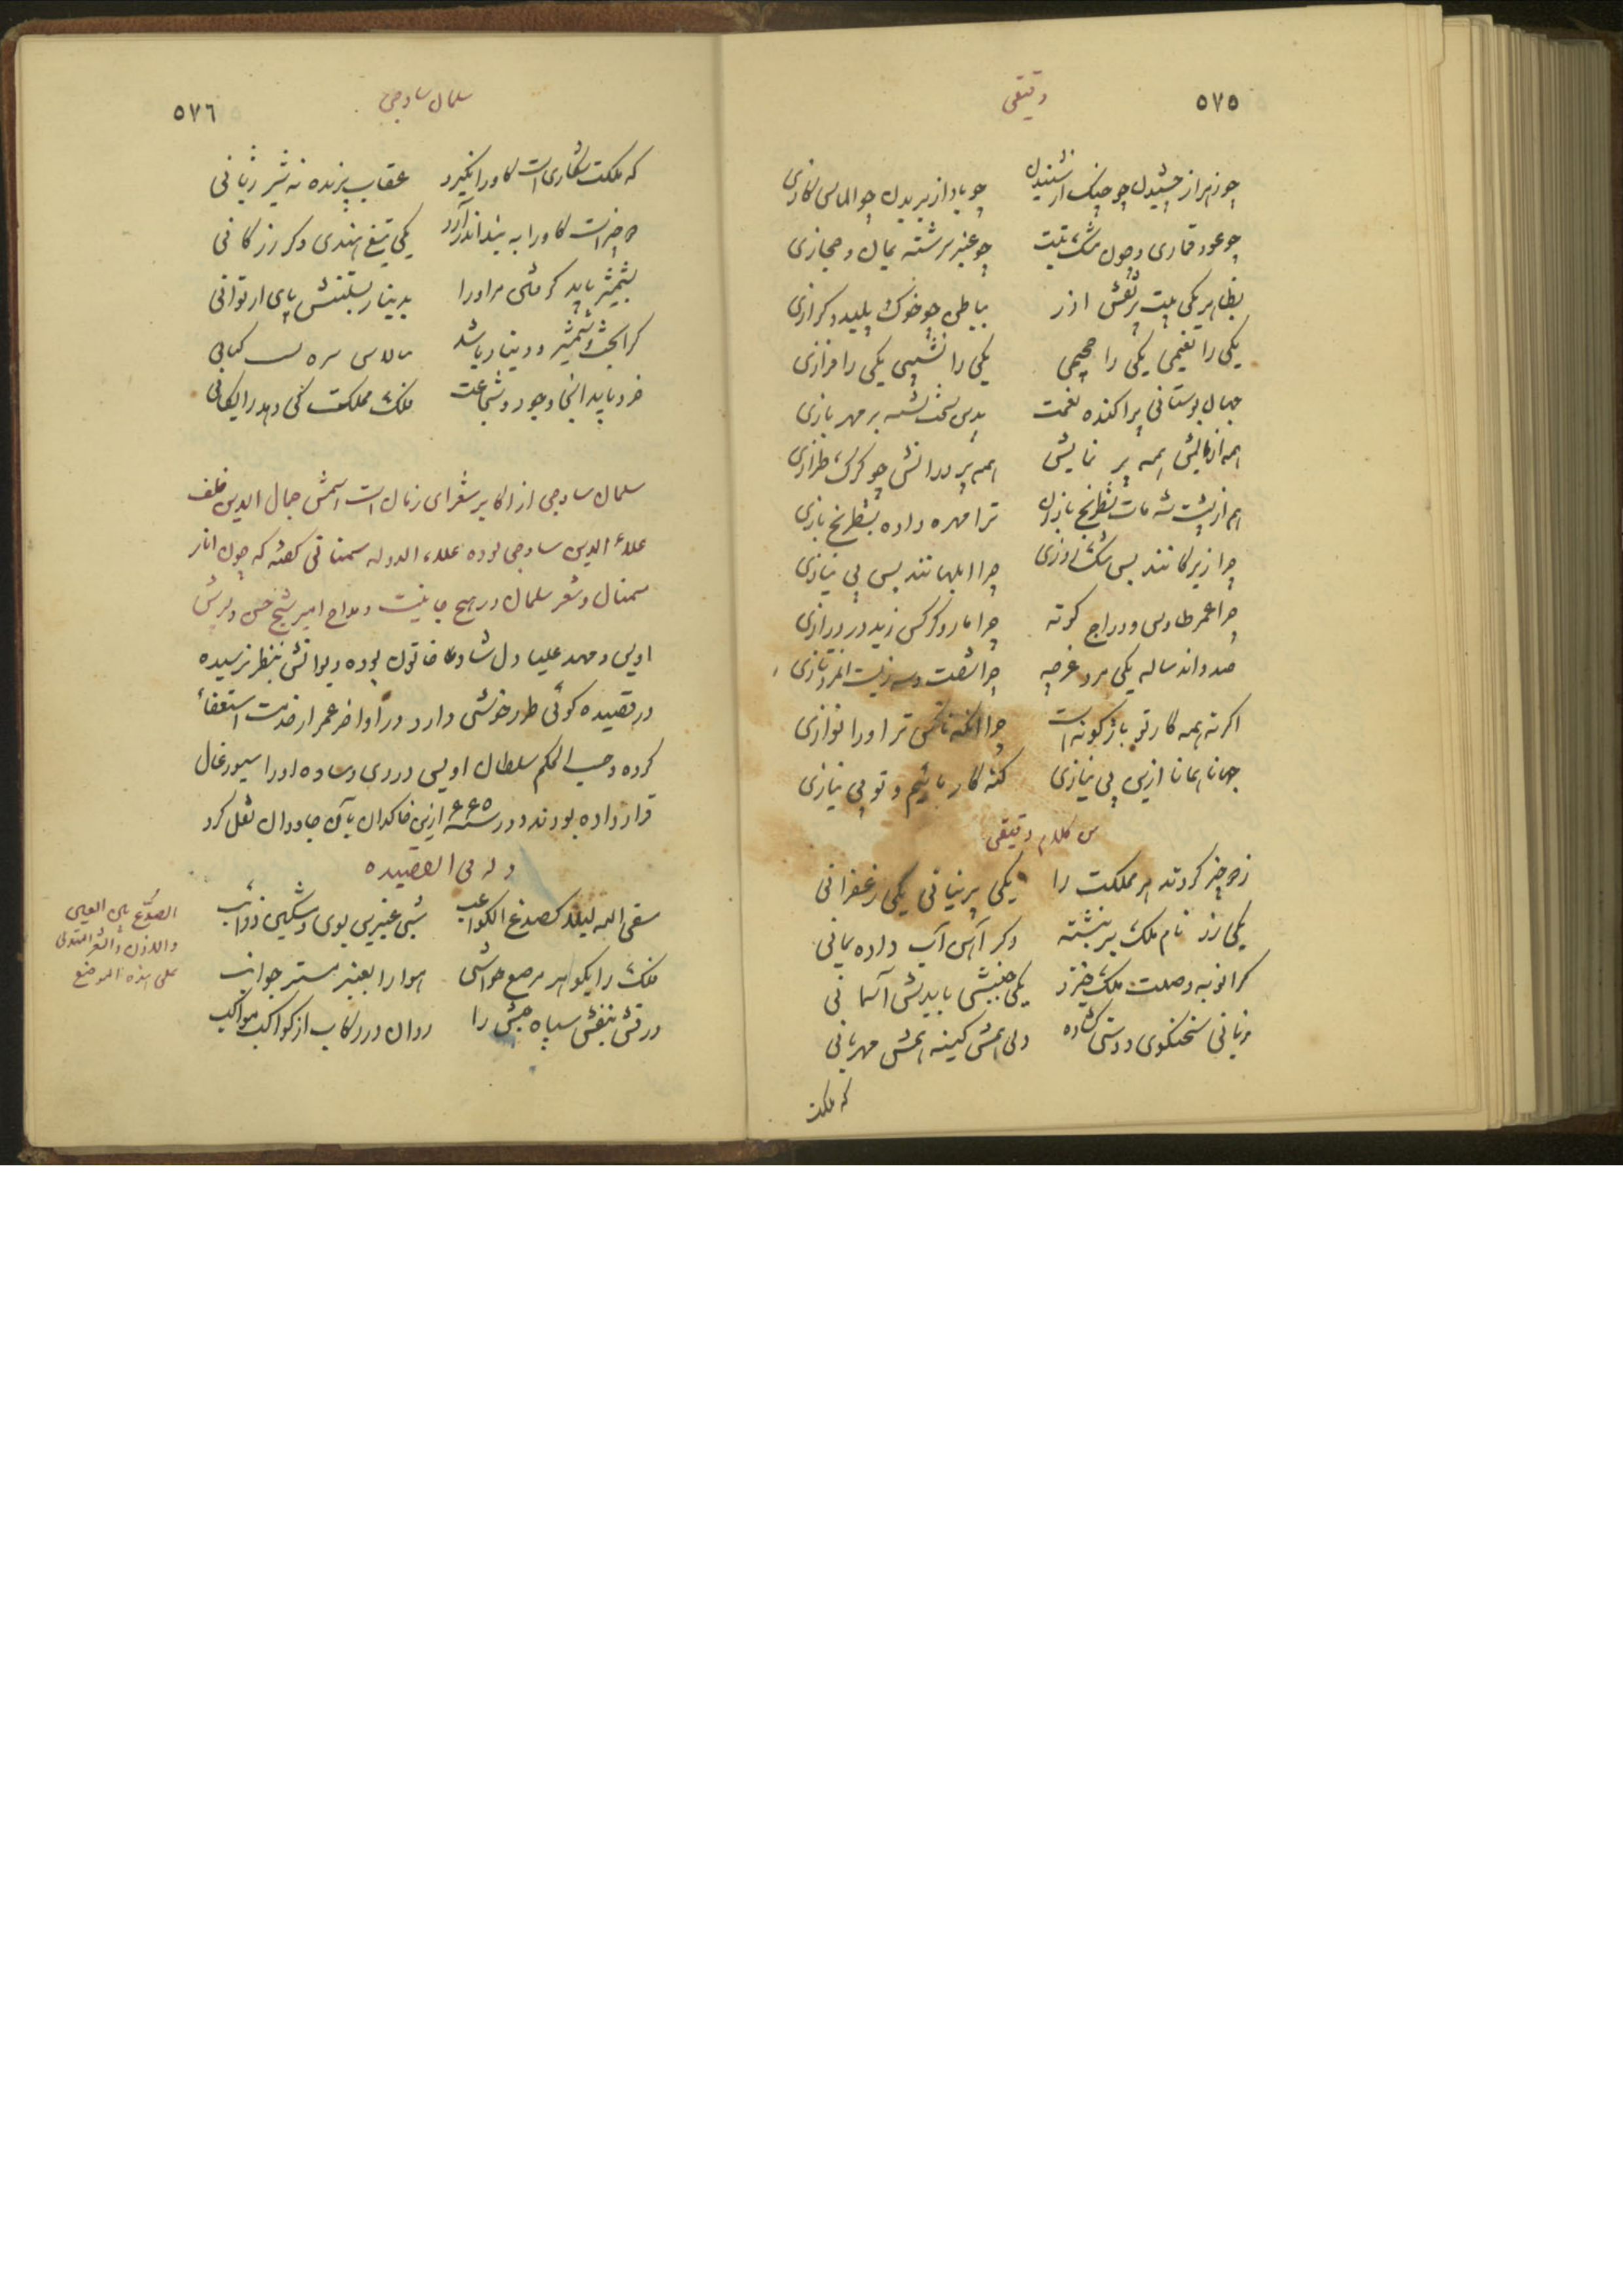 ٥٧٥
دقیقی
چو زهر از چشیدن چو چنک از شنیدن چو باد از بریدن چو الماس کازی
چو عود قماری و چون مشک تبت چو عنبر سرشته یمان و حجازی
بظاهر یکی بیت پر نقش اذر بباطن چو خوک پلید و کرازی
یکی را نعیمی یکی را جحیمی یکی را نشیبی یکی را فرازی
جهان بوستانی پراکنده نعمت بدین سخت بسته بر مهر بازی
همه ازمایش همه پر نمایش همه پر درایش چو کرک طرازی
هم از پشت شه مات شطرنج بازان ترا مهره داده بشطرنج بازی
چرا زیرکانند بس تنک روزی چرا ابلهانند بس بی نیازی
چرا عمر طاوس و دراج کوته چرا مار و کرکس زید در درازی
صد و اند ساله یکی مرد غرچه چرا شصت و سه زیست انمرد تازی
اکر نه همه کار تو باژکونه است چرا انکه ناکس تر او را نوازی
جهانا همانا ازین بی نیازی کنه کار مائیم و تو بی نیازی
من کلام دقیقی
ز دو چیز کیرند هر مملکت را یکی پرنیانی یکی زعفرانی
یکی زر نام ملک بر نبشته دکر آهن آب داده یمانی
کرا بویه وصلت ملک خیزد یکی جنبشی بایدش آسمانی
زبانی سخنکوی و دستی کشاده دلی همش کینه همش مهربانی
که ملکت
٥٧٦
سلمان ساوجی
که ملکت شکاری است کاو را نکیرد عقاب پرنده نه شیر ژیانی
دو چیز است کاو را به بند اندر آرد یکی تیغ هندی دکر زر کانی
بشمشیر باید کرفتن مر او را بدینار بستنش پای ار توانی
کرا بخت و شمشیر و دینار باشد
خرد باید انجا وجود و شجاعت فلک مملکت کی دهد رایکانی
سلمان ساوجی از اکابر شعرای زمان است اسمش جمال الدین خلف
علاء الدین ساوجی بوده علاء الدوله سمنانی کفته که چون انار
سمنان و شعر سلمان در هیچ جا نیست و مداح امیر شیخ حسن و پسرش
اویس و مهد علیا دلشاد خاتون بوده دیوانش بنظر نرسیده
در قصیده کوئی طور خوشی دارد در اواخر عمر از خدمت استعفاء
کرده و حسب الحکم سلطان اویس در ری و ساوه او را سیورغال
قرار داده بودند و در سنه ۶۶۵ ازین خاکدان بآن جاودان نقل کرد
و له فی القصیده
سقی الله لیلا کصدغ الکواعب شبی عنبرین بوی و مشکین ذوائب
فلک را بکواهر مرصع حواشی هوا را بعنبر مستر جوانب
درفش بنفش سپاه حبش را روان در رکاب از کواکب مواکب
الصدغ بین العین
والاذن و الشعر المتدلی
علی هذه الموضع